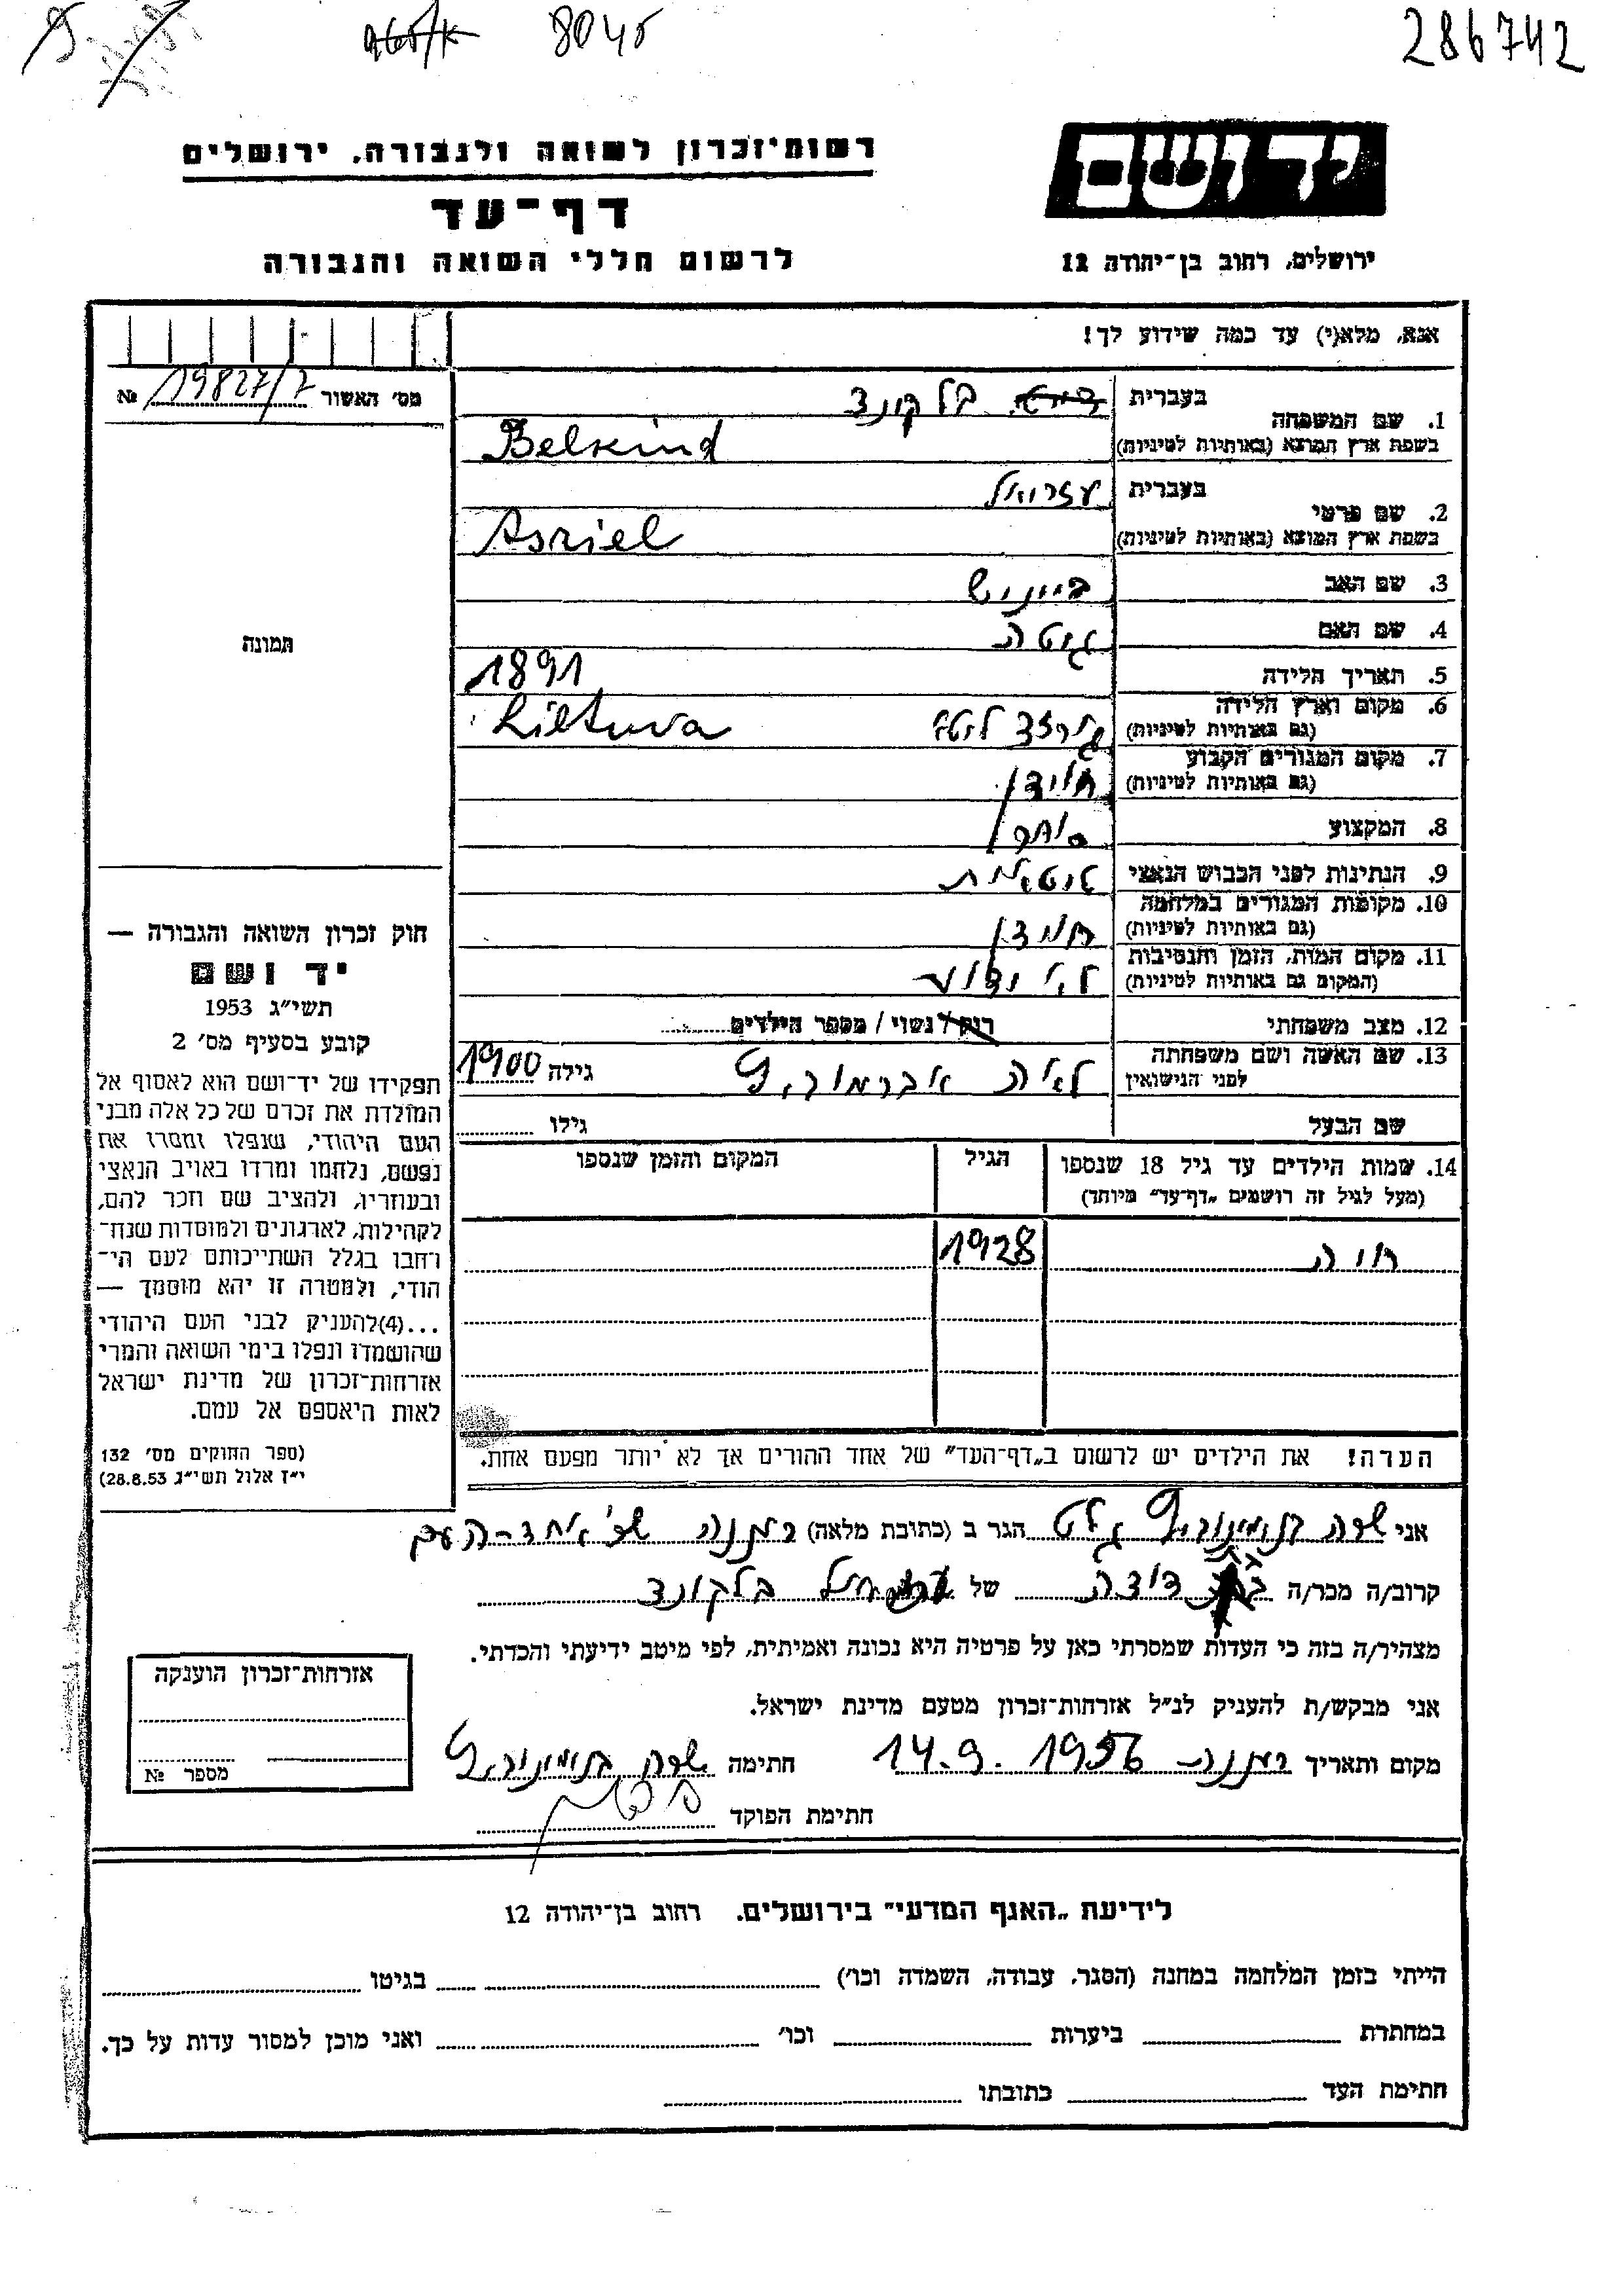 8045
286742
יד ושם
ירושלים, רחוב בן־יהודה 12
רשות־זכרון לשואה ולגבורה, ירושלים
דף־עד
לרשום חללי השואה והגבורה
אנא, מלא(י) עד כמה שידוע לך!
מס' האשור 19827/7 №
1. שם המשפחה
בעברית בלקינד
בשפת ארץ המוצא (באותיות לטיניות) Belkind
2. שם פרטי
בעברית עזריאל
בשפת ארץ המוצא (באותיות לטיניות) Asriel
3. שם האב ביינוש
4. שם האם גיטה
5. תאריך הלידה 1891
6. מקום וארץ הלידה
(גם באותיות לטיניות) ליטא Lietuva
7. מקום המגורים הקבוע
(גם באותיות לטיניות)
8. המקצוע סוחר
9. הנתינות לפני הכבוש הנאצי ליטאית
10. מקומות המגורים במלחמה
(גם באותיות לטיניות)
11. מקום המות, הזמן והנסיבות
(המקום גם באותיות לטיניות) לא ידוע
12. מצב משפחתי רוק/נשוי/מספר הילדים
13. שם האשה ושם משפחתה
לפני הנישואין לאה אברמוביץ גילה 1900
שם הבעל גילו
14. שמות הילדים עד גיל 18 שנספו
(מעל לגיל זה רושמים „דף־עד" מיוחד)
הגיל
המקום והזמן שנספו
חוה 1928
הערה! את הילדים יש לרשום ב„דף־העד" של אחד ההורים אך לא יותר מפעם אחת.
תמונה
חוק זכרון השואה והגבורה —
יד ושם
תשי"ג 1953
קובע בסעיף מס' 2
תפקידו של יד־ושם הוא לאסוף אל
המולדת את זכרם של כל אלה מבני
העם היהודי, שנפלו ומסרו את
נפשם, נלחמו ומרדו באויב הנאצי
ובעוזריו, ולהציב שם וזכר להם,
לקהילות, לארגונים ולמוסדות שנח־
רחבו בגלל השתייכותם לעם הי־
הודי, ולמטרה זו יהא מוסמך —
...(4)להעניק לבני העם היהודי
שהושמדו ונפלו בימי השואה והמרי
אזרחות־זכרון של מדינת ישראל
לאות היאספם אל עמם.
(ספר החוקים מס' 132
י"ז אלול תשי"ג 28.8.53)
אני שרה בנימינוביץ הגר ב (כתובת מלאה) רעננה שד' אחד-העם
קרוב/ה מכר/ה בת דודה של עזריאל בלקינד
מצהיר/ה בזה כי העדות שמסרתי כאן על פרטיה היא נכונה ואמיתית, לפי מיטב ידיעתי והכרתי.
אני מבקש/ת להעניק לנ"ל אזרחות־זכרון מטעם מדינת ישראל.
מקום ותאריך רעננה 14.9.1956 חתימה שרה בנימינוביץ
חתימת הפוקד
אזרחות־זכרון הוענקה
מספר №
לידיעת „האגף המדעי" בירושלים. רחוב בן־יהודה 12
הייתי בזמן המלחמה במחנה (הסגר, עבודה, השמדה וכו') בגיטו
במחתרת ביערות וכו' ואני מוכן למסור עדות על כך.
חתימת העד כתובתו